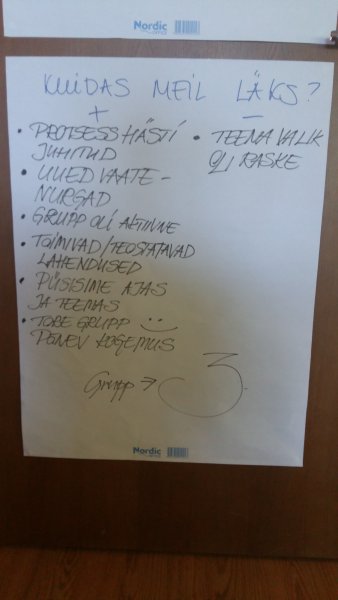 Nordic
KUIDAS MEIL LÄKS?
+
• PROTSESS HÄSTI
JUHITUD
• UUED VAATE-
NURGAD
• GRUPP OLI AKTIIVNE
• TOIMIVAD/TEOSTATAVAD
LAHENDUSED
• PÜSISIME AJAS
JA TEEMAS
• TORE GRUPP
PÕNEV KOGEMUS
-
• TEEMA VALIK
OLI RASKE
Grupp → 3
Nordic